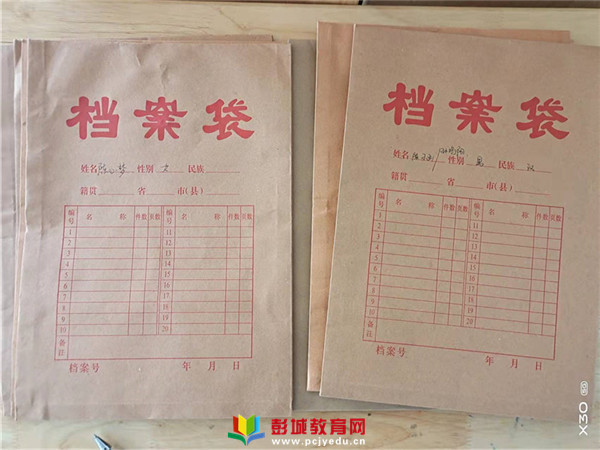 档案袋
姓名 性别 女 民族
籍贯 省 市(县)
编号 名称 件数 页数 编号 名称 件数 页数
1 11
2 12
3 13
4 14
5 15
6 16
7 17
8 18
9 19
10 20
备注
档案号 年 月 日
档案袋
姓名 性别 男 民族 汉
籍贯 省 市(县)
编号 名称 件数 页数 编号 名称 件数 页数
1 11
2 12
3 13
4 14
5 15
6 16
7 17
8 18
9 19
10 20
备注
档案号 年 月 日
彭城教育网
www.pcjyedu.cn
X30